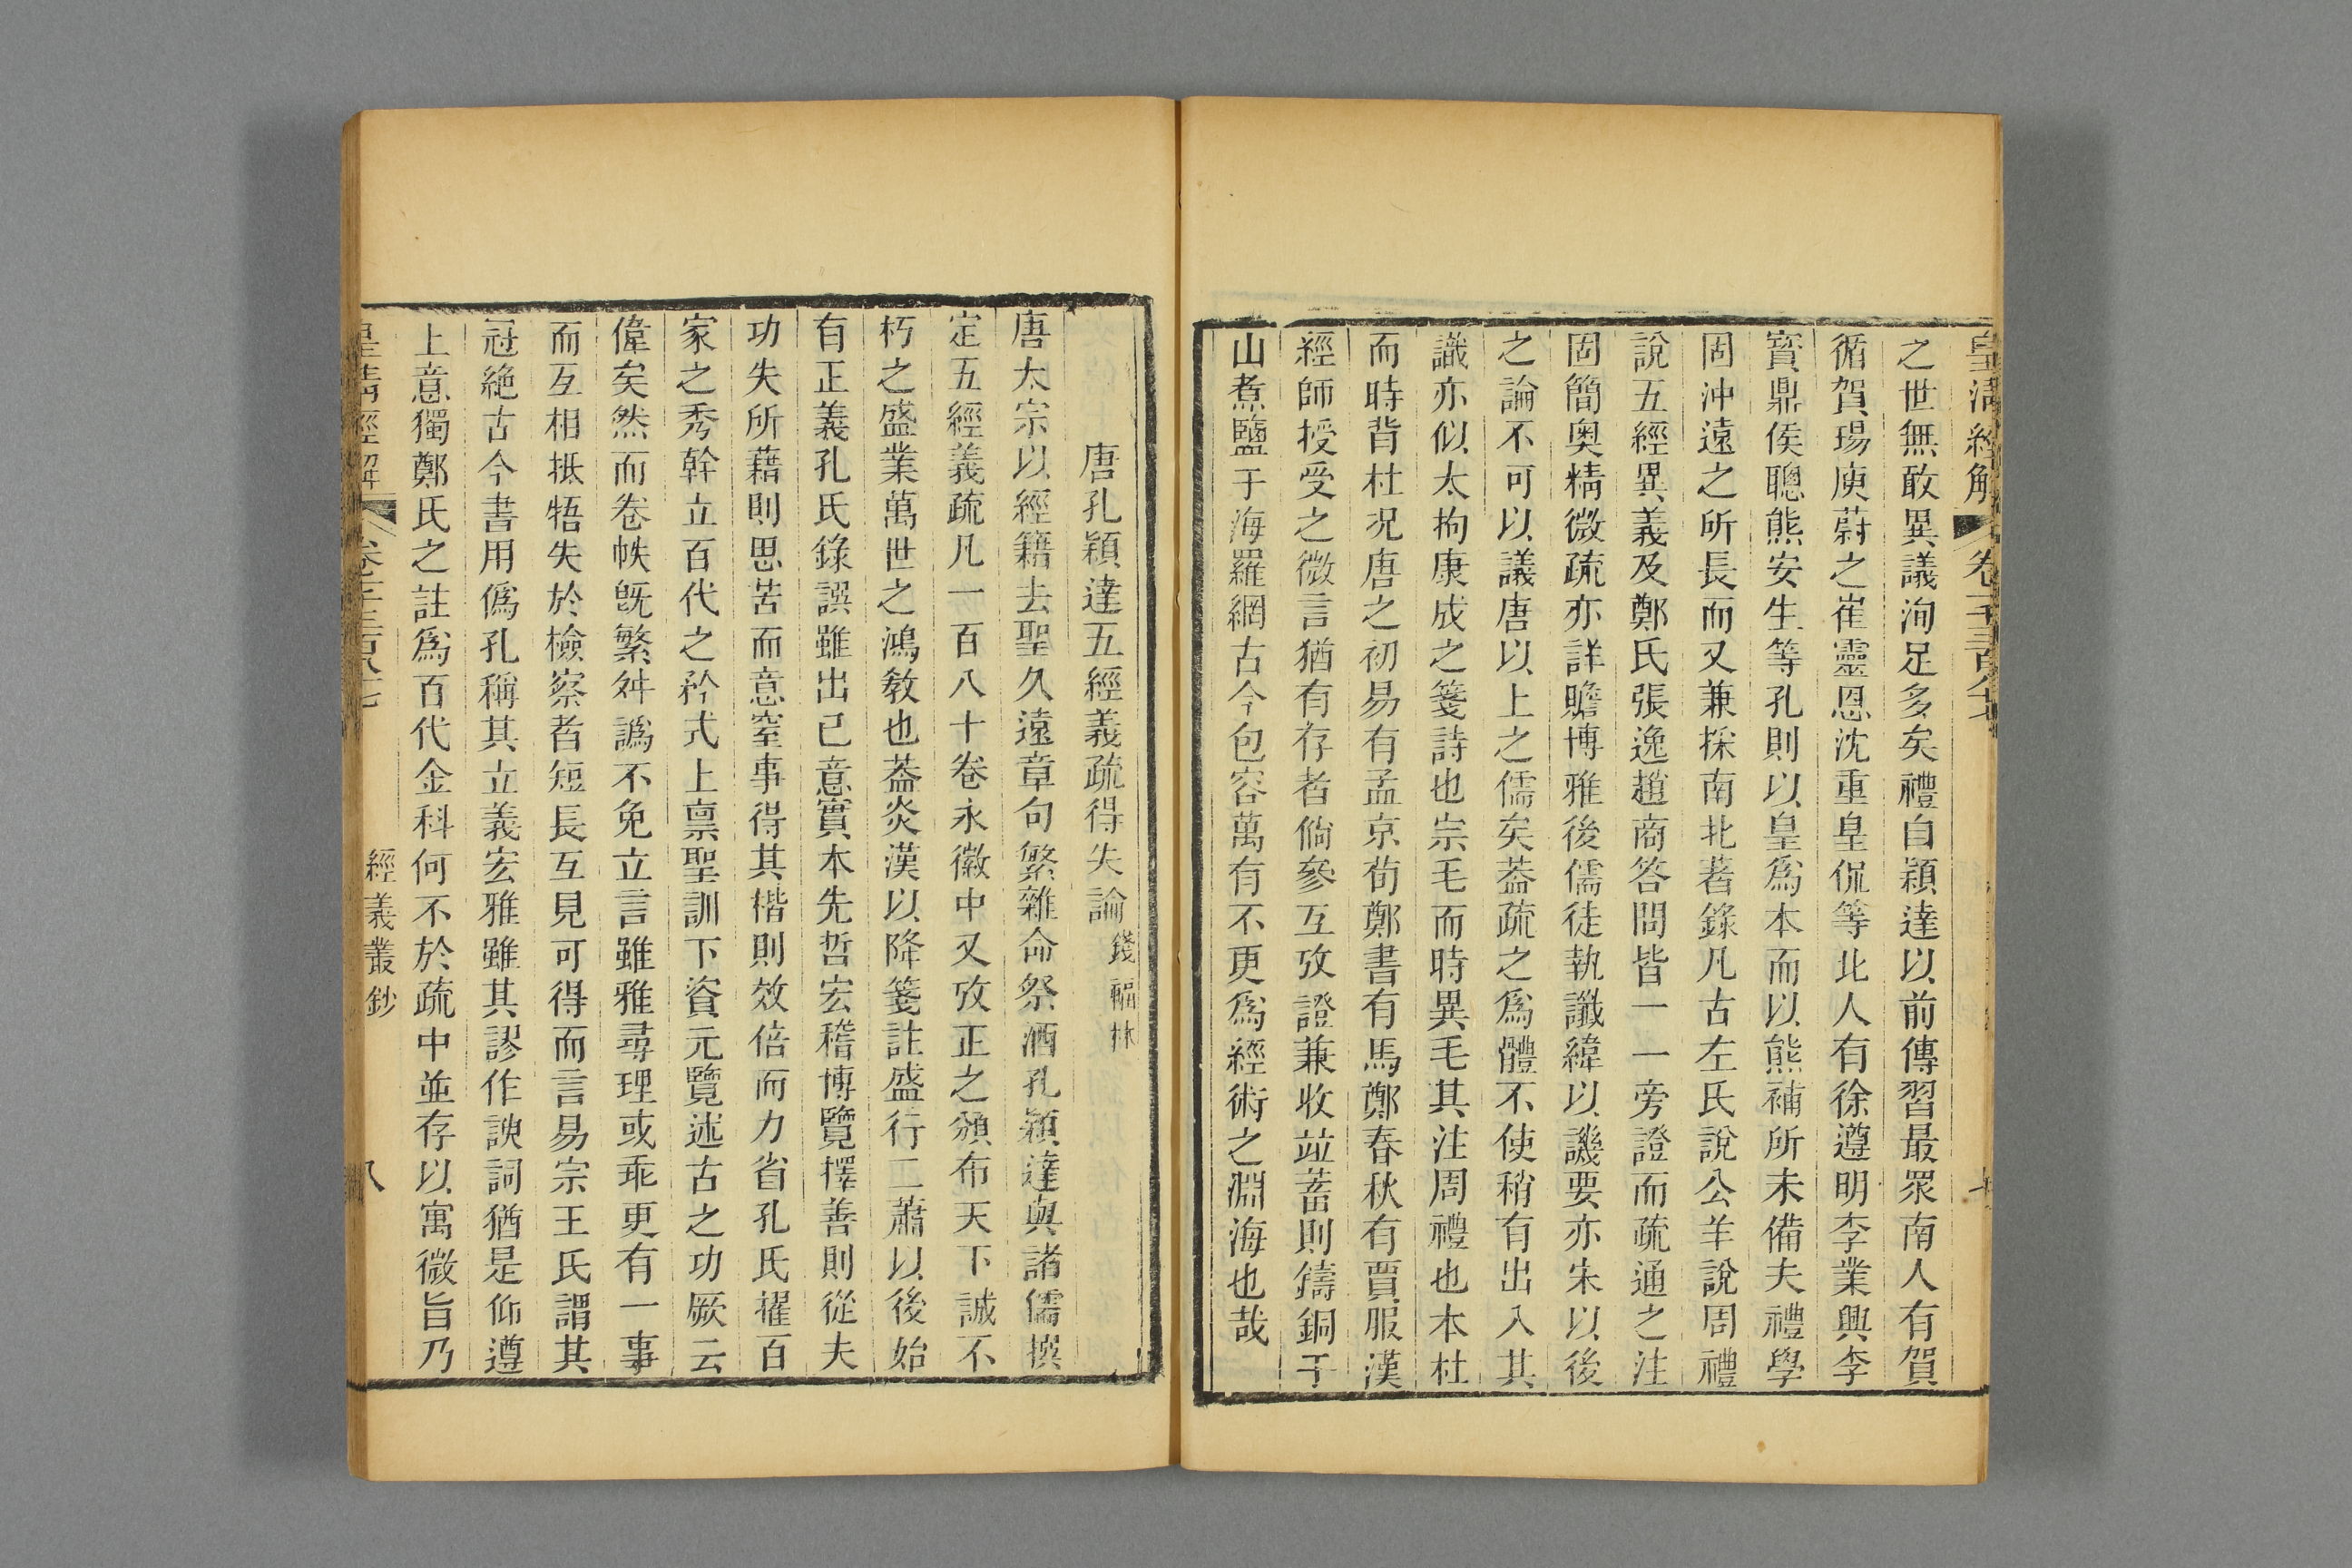 皇清經解 卷一千三百八十七
之世無敢異議洵足多矣禮自穎達以前傳習最眾南人有賀
循賀瑒庾蔚之崔靈恩沈重皇侃等北人有徐遵明李業興李
寳鼎侯聰熊安生等孔則以皇為本而以熊補所未備夫禮學
固沖遠之所長而又兼採南北著錄凡古左氏說公羊說周禮
說五經異義及鄭氏張逸趙商答問皆一一旁證而疏通之注
固簡奧精微疏亦詳贍博雅後儒徒執讖緯以譏要亦朱以後
之論不可以議唐以上之儒矣葢疏之為體不使稍有出入其
識亦似太拘康成之箋詩也宗毛而時異毛其注周禮也本杜
而時背杜况唐之初易有孟京荀鄭書有馬鄭春秋有賈服漢
經師授受之微言猶有存者倘參互攷證兼收竝蓄則鑄銅于
山煮鹽于海羅網古今包容萬有不更為經術之淵海也哉
唐孔穎達五經義疏得失論 錢福林
唐太宗以經籍去聖久遠章句繁雜命祭酒孔穎達與諸儒撰
定五經義疏凡一百八十卷永徽中又攷正之頒布天下誠不
朽之盛業萬世之鴻教也葢炎漢以降箋註盛行二蕭以後始
有正義孔氏錄誤雖出己意實本先哲宏稽博覽擇善則從夫
功失所藉則思苦而意窒事得其楷則效倍而力省孔氏擢百
家之秀幹立百代之矜式上禀聖訓下資元覽述古之功厥云
偉矣然而卷帙既繁舛譌不免立言雖雅尋理或乖更有一事
而互相抵牾失於檢察者短長互見可得而言易宗王氏謂其
冠絶古今書用僞孔稱其立義宏雅雖其謬作諛詞猶是仰遵
上意獨鄭氏之註為百代金科何不於疏中並存以寓微旨乃
皇清經解 卷一千三百八十七 經義叢鈔 八